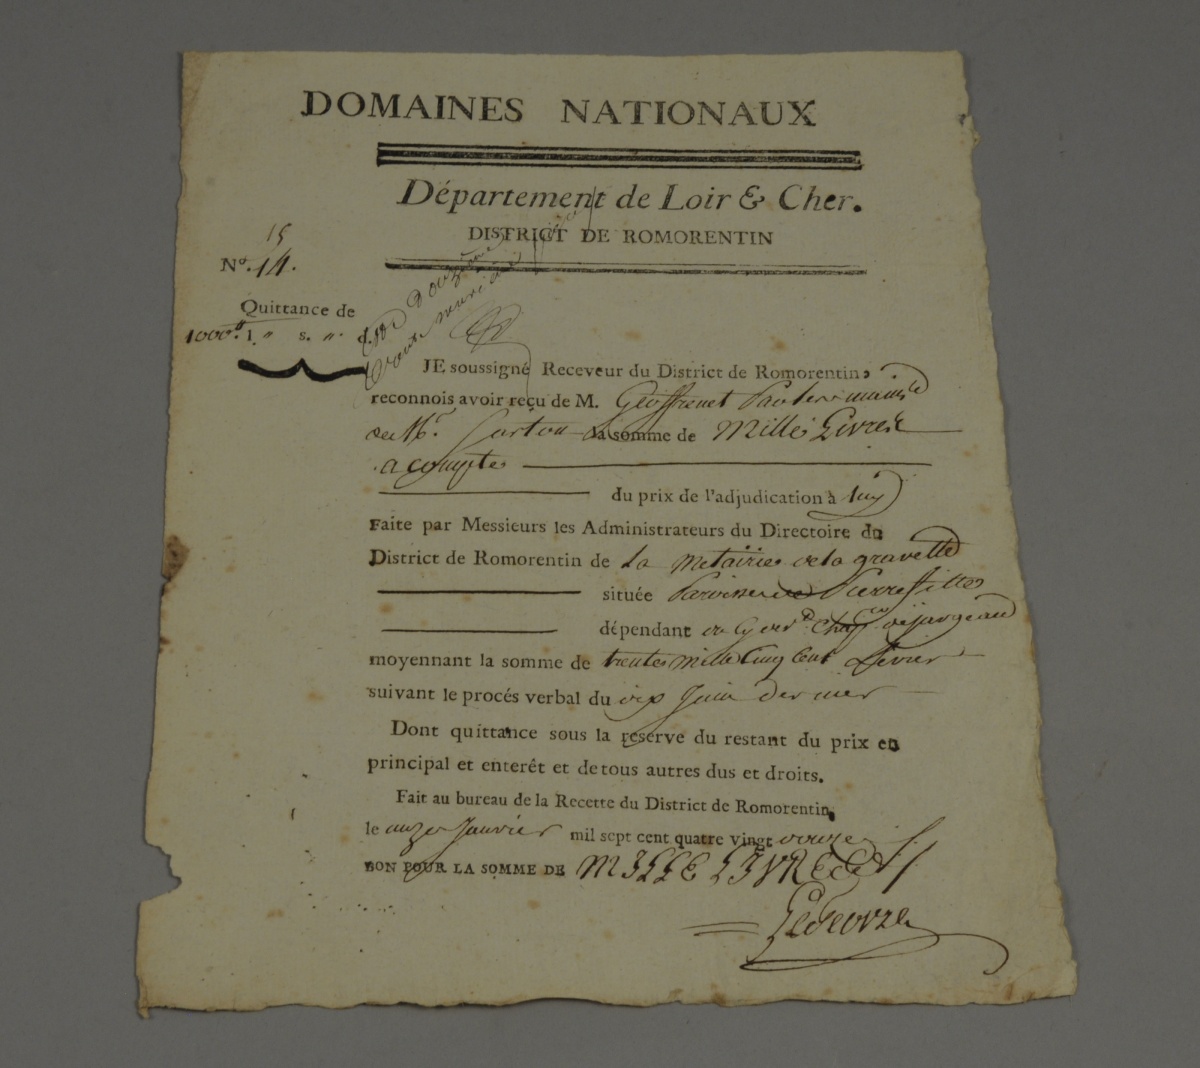 DOMAINES NATIONAUX
Département de Loir & Cher.
DISTRICT DE ROMORENTIN
15
No. 14.
Quittance de
1000ll l. " s. " d.
JE soussigné Receveur du District de Romorentin,
reconnois avoir reçu de M. Geoffrenet Par les mains
de Mr. la somme de Mille Livres
a compte
du prix de l'adjudication à luy
Faite par Messieurs les Administrateurs du Directoire du
District de Romorentin de La metairie de la gravette
située Paroisse de Pierrefitte
dépendant de jargeau
moyennant la somme de trente mille Cinq Cent Livres
suivant le procés verbal du dix Juin dernier
Dont quittance sous la réserve du restant du prix en
principal et enterêt et de tous autres dus et droits.
Fait au bureau de la Recette du District de Romorentin,
le onze Janvier mil sept cent quatre vingt onze
BON POUR LA SOMME DE MILLE LIVRES